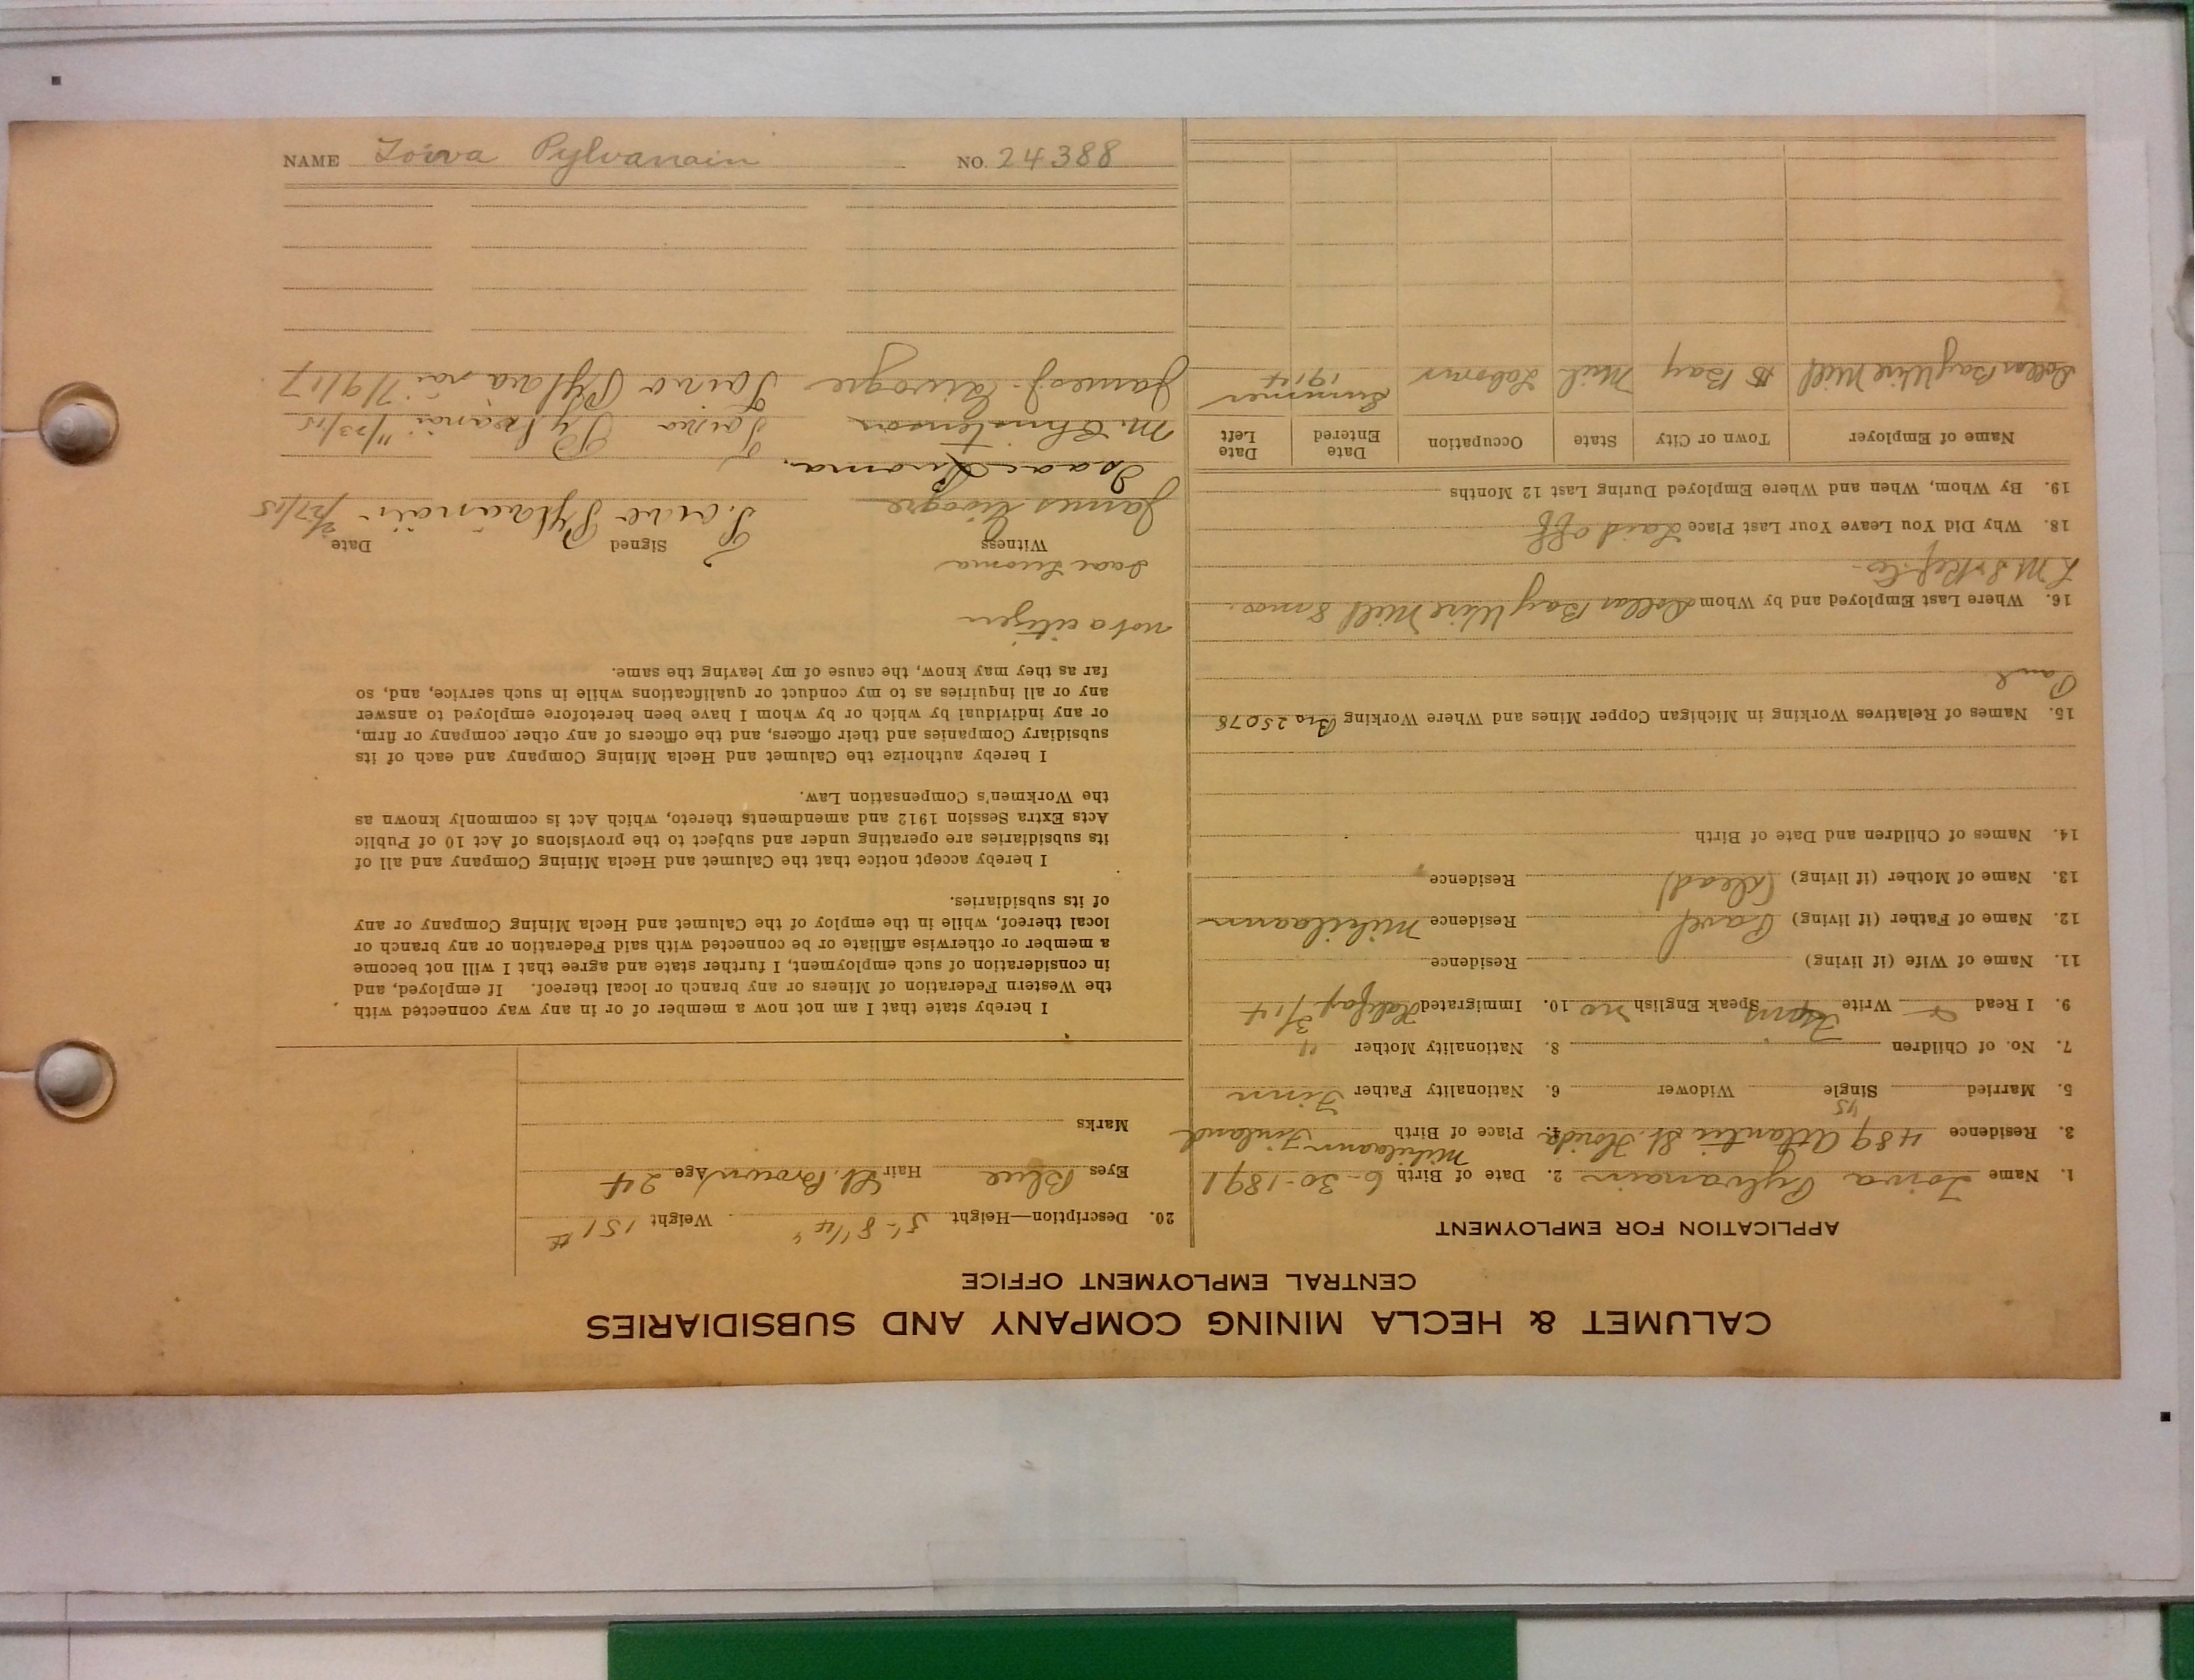 CALUMET & HECLA MINING COMPANY AND SUBSIDIARIES
CENTRAL EMPLOYMENT OFFICE
APPLICATION FOR EMPLOYMENT
1. Name Toiva Pylvanain 2. Date of Birth 6-30-1891
3. Residence 489 Atlantic St. Florida 4. Place of Birth Mikilaann Finland
5. Married Single ys Widower 6. Nationality Father Finn
7. No. of Children 8. Nationality Mother "
9. I Read & Write Finnis Speak English no 10. Immigrated Halifax 3/14
11. Name of Wife (if living) Residence
12. Name of Father (if living) Pavel Residence Mikilaann
13. Name of Mother (if living) (dead) Residence
14. Names of Children and Date of Birth
15. Names of Relatives Working in Michigan Copper Mines and Where Working Bro 25078
Paul
16. Where Last Employed and by Whom Dollar Bay Wire Mill 8 mos.
L M S & Ref. Co.
18. Why Did You Leave Your Last Place Laid off
19. By Whom, When and Where Employed During Last 12 Months
Name of Employer Town or City State Occupation Date Entered Date Left
Dollar Bay Wire Mill D Bay Mich Laborer Summer 1914
20. Description—Height 5'-8 1/4" Weight 151 #
Eyes Blue Hair Lt. Brown Age 24
Marks
I hereby state that I am not now a member of or in any way connected with
the Western Federation of Miners or any branch or local thereof. If employed, and
in consideration of such employment, I further state and agree that I will not become
a member or otherwise affiliate or be connected with said Federation or any branch or
local thereof, while in the employ of the Calumet and Hecla Mining Company or any
of its subsidiaries.
I hereby accept notice that the Calumet and Hecla Mining Company and all of
its subsidiaries are operating under and subject to the provisions of Act 10 of Public
Acts Extra Session 1912 and amendments thereto, which Act is commonly known as
the Workmen's Compensation Law.
I hereby authorize the Calumet and Hecla Mining Company and each of its
subsidiary Companies and their officers, and the officers of any other company or firm,
or any individual by which or by whom I have been heretofore employed to answer
any or all inquiries as to my conduct or qualifications while in such service, and, so
far as they may know, the cause of my leaving the same.
not a citizen
Isaac Luoma
Witness Signed Date
James Givogre Toivo Pylvänäin 2/27/15
Isaac Luoma.
M. Christenson Toivo Pylvänäi 11/23/15
James J. Givogre Toivo Pylvänäi 7/9/17
NAME Toiva Pylvanain NO. 24388